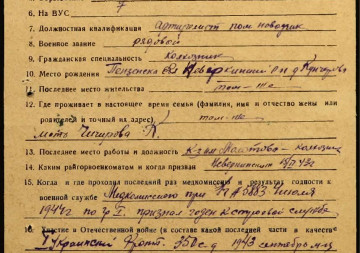 6. На ВУС 7
7. Должностная квалификация артиллерист пом. наводчик
8. Военное звание рядовой
9. Гражданская специальность колхозник
10. Место рождения Пензенская обл Неверкинский р-н д
11. Последнее место жительства там-же
12. Где проживает в настоящее время семья (фамилия, имя и отчество жены или
родителей и точный их адрес) там-же
мать К.
13. Последнее место работы и должность колхозник
14. Каким райгорвоенкоматом и когда призван Неверкинским РВК 43г
15. Когда и где проходил последний раз медкомиссию и результат годности к
военной службе Медкомиссию при 5883
1944г по гр I. признан годен к строевой службе
16. Участие в Отечественной войне (в составе какой последней части в качестве
I Украинский Фронт. 350 с.д 1943 сентябрь м-ц